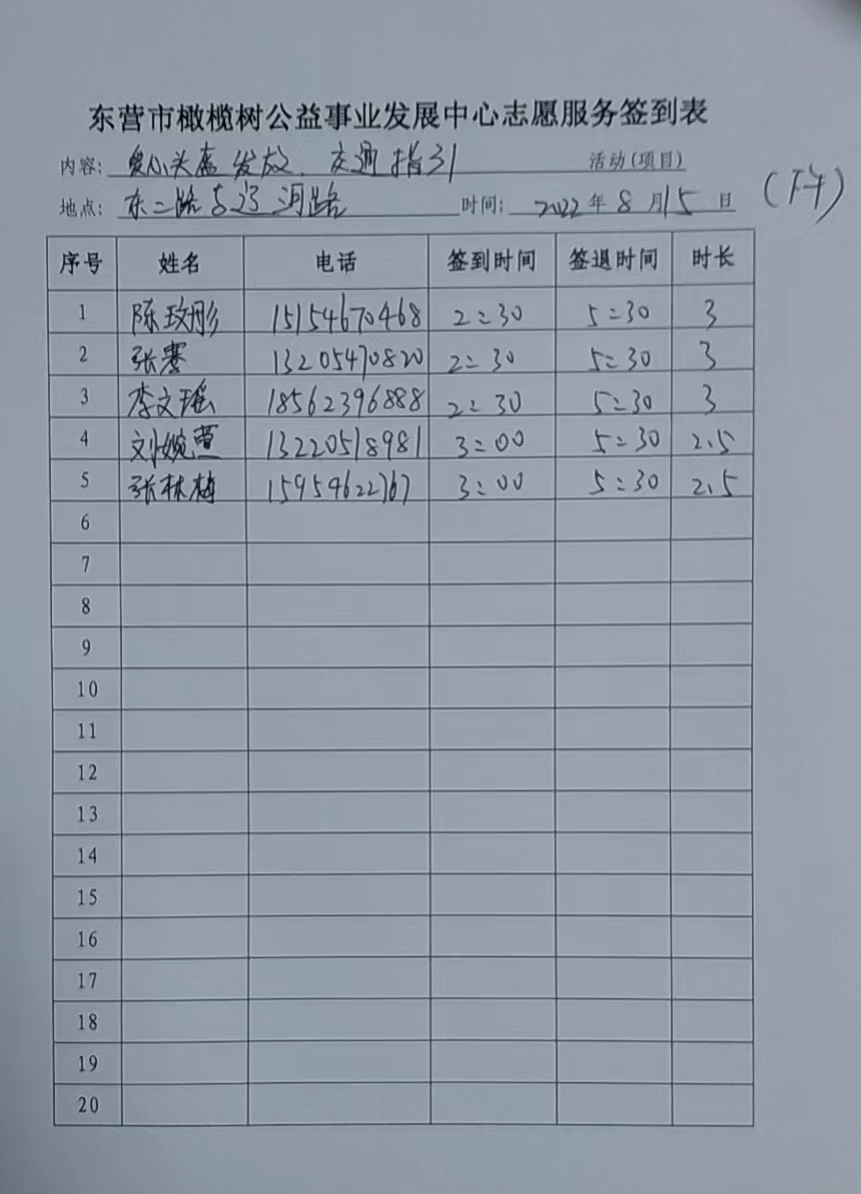 东营市橄榄树公益事业发展中心志愿服务签到表
内容: 爱心头盔发放、交通指引 活动(项目)
地点: 东二路与辽河路 时间: 2022年8月15日 (下午)
序号 姓名 电话 签到时间 签退时间 时长
1 陈玟彤 15154670468 2:30 5:30 3
2 张骞 13205470820 2:30 5:30 3
3 李文瑶 18562396888 2:30 5:30 3
4 刘婉萱 13220518981 3:00 5:30 2.5
5 张林梅 15954622767 3:00 5:30 2.5
6
7
8
9
10
11
12
13
14
15
16
17
18
19
20